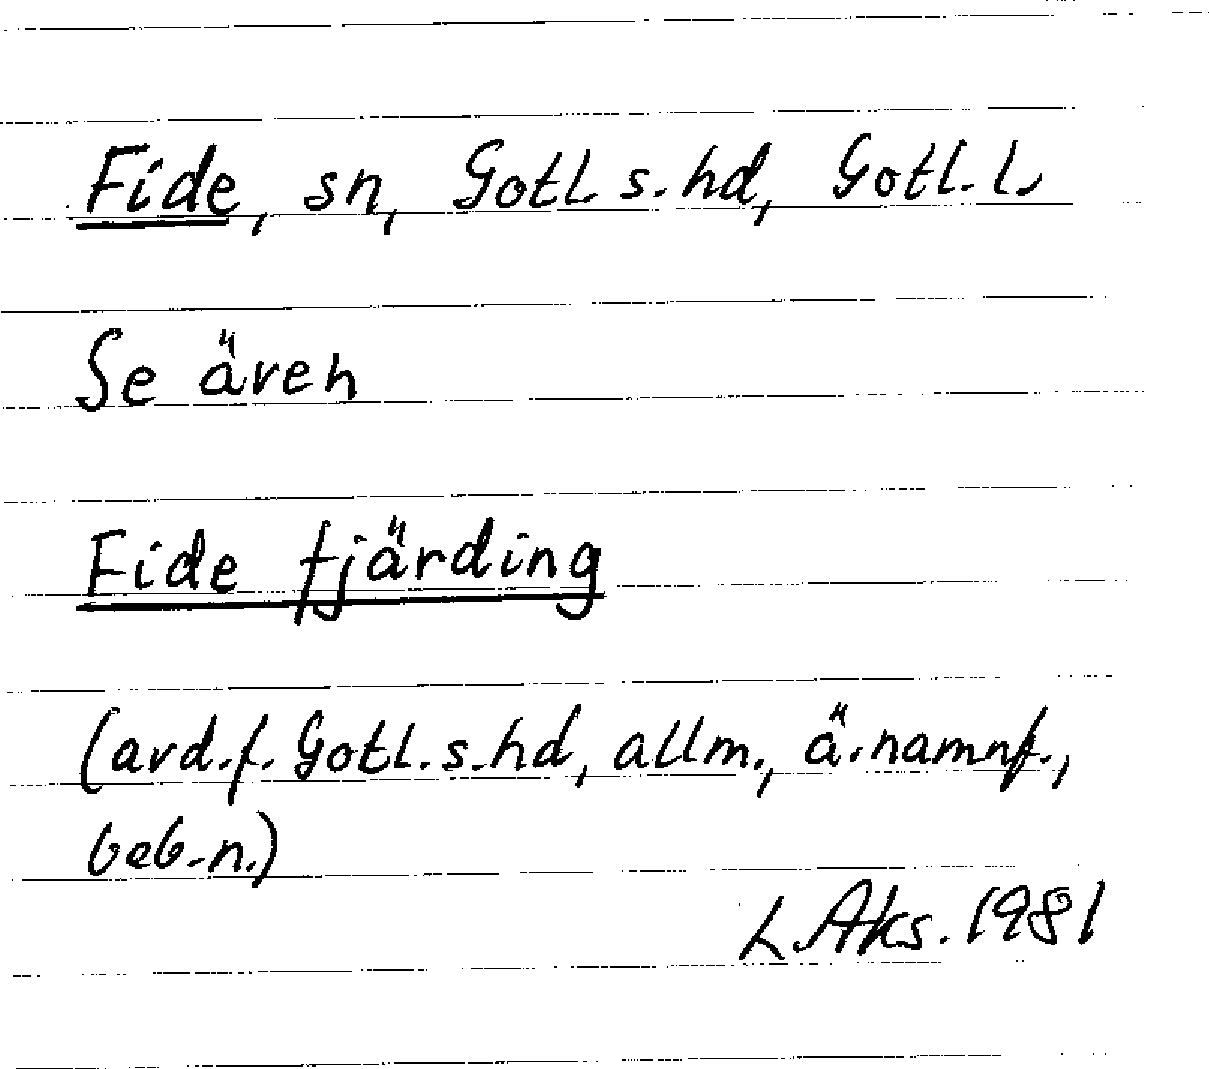 Fide, sn, Gotl. s. hd, Gotl. l.
Se även
Fide fjärding
(avd. f. Gotl. s. hd, allm., ä. namnf.,
beb.-n.)
L. Aks. 1981